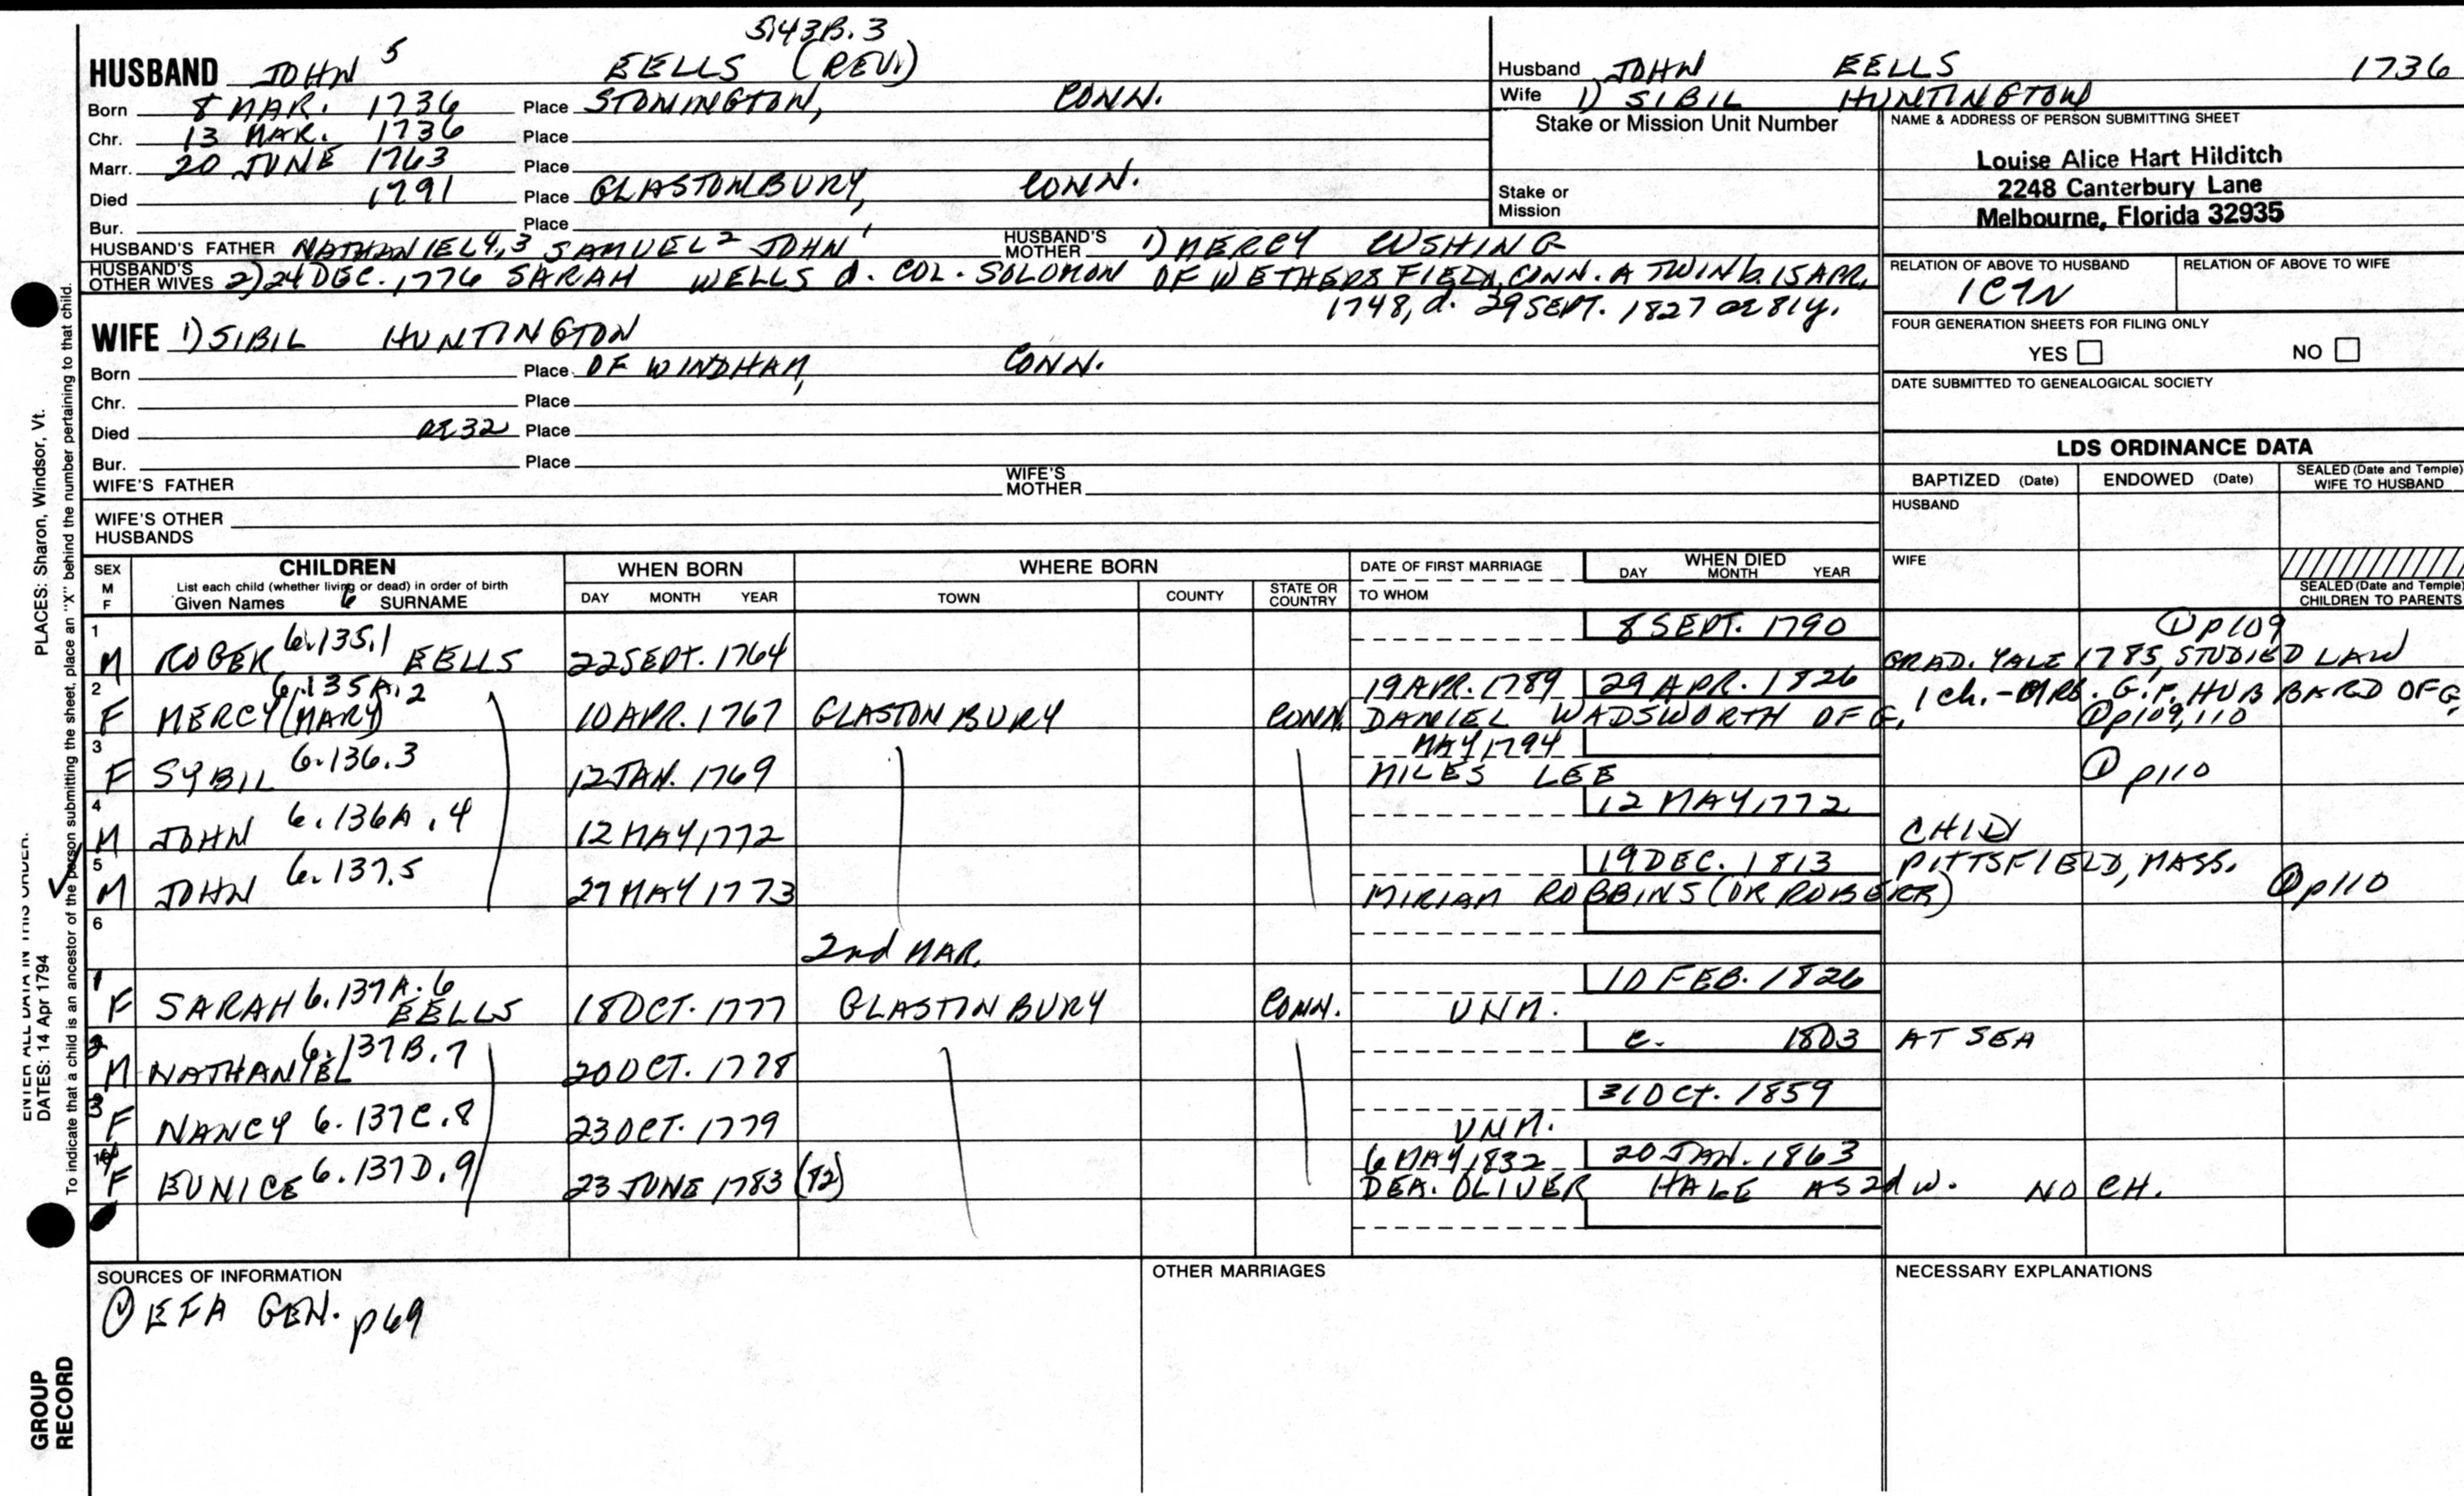 5143B.3
HUSBAND JOHN 5 EELLS (REV.)
Born 8 MAR. 1736 Place STONINGTON, CONN.
Chr. 13 MAR. 1736 Place
Marr. 20 JUNE 1763 Place
Died 1791 Place GLASTONBURY, CONN.
Bur. Place
HUSBAND'S FATHER NATHANIEL 4,3 SAMUEL 2 JOHN 1 HUSBAND'S MOTHER 1) MERCY CUSHING
HUSBAND'S OTHER WIVES 2) 24 DEC. 1776 SARAH WELLS d. COL. SOLOMON OF WETHERSFIELD, CONN. A TWIN b. 15 APR.
1748, d. 29 SEPT. 1827 ae 81y.
WIFE 1) SIBIL HUNTINGTON
Born Place OF WINDHAM, CONN.
Chr. Place
Died AE 32 Place
Bur. Place
WIFE'S FATHER WIFE'S MOTHER
WIFE'S OTHER HUSBANDS
Husband JOHN EELLS 1736
Wife 1) SIBIL HUNTINGTON
Stake or Mission Unit Number
Stake or Mission
NAME & ADDRESS OF PERSON SUBMITTING SHEET
Louise Alice Hart Hilditch
2248 Canterbury Lane
Melbourne, Florida 32935
RELATION OF ABOVE TO HUSBAND RELATION OF ABOVE TO WIFE
1C7N
FOUR GENERATION SHEETS FOR FILING ONLY
YES NO
DATE SUBMITTED TO GENEALOGICAL SOCIETY
LDS ORDINANCE DATA
BAPTIZED (Date) ENDOWED (Date) SEALED (Date and Temple) WIFE TO HUSBAND
HUSBAND
WIFE
SEALED (Date and Temple) CHILDREN TO PARENTS
SEX M F CHILDREN WHEN BORN WHERE BORN DATE OF FIRST MARRIAGE WHEN DIED
List each child (whether living or dead) in order of birth
Given Names 6 SURNAME DAY MONTH YEAR TOWN COUNTY STATE OR COUNTRY TO WHOM DAY MONTH YEAR
1 8 SEPT. 1790 ① p109
M ROGER 6.135.1 EELLS 22 SEPT. 1764 GRAD. YALE 1785, STUDIED LAW
2 6.135A.2 19 APR. 1789 29 APR. 1826 1 ch. - MRS. G.F. HUBBARD OF G,
F MERCY (MARY) 10 APR. 1767 GLASTONBURY CONN. DANIEL WADSWORTH OF G, ① p109,110
3 MAY 1794
F SYBIL 6.136.3 12 JAN. 1769 MILES LEE ① p110
4 12 MAY 1772
M JOHN 6.136A.4 12 MAY 1772 CHID
5 19 DEC. 1813 PITTSFIELD, MASS.
M JOHN 6.137.5 27 MAY 1773 MIRIAM ROBBINS (OR ROBERR) ① p110
6
2nd MAR.
1 10 FEB. 1826
F SARAH 6.137A.6 EELLS 18 OCT. 1777 GLASTINBURY CONN. UNM.
2 c. 1803 AT SEA
M NATHANIEL 6.137B.7 20 OCT. 1778
3 31 OCT. 1859
F NANCY 6.137C.8 23 OCT. 1779 UNM.
6 MAY 1832 20 JAN. 1863
F EUNICE 6.137D.9 23 JUNE 1783 (82) DEA. OLIVER HALE AS 2d W. NO CH.
SOURCES OF INFORMATION OTHER MARRIAGES NECESSARY EXPLANATIONS
① EFA GEN. p69
PLACES: Sharon, Windsor, Vt.
ENTER ALL DATA IN THIS ORDER:
DATES: 14 Apr 1794
To indicate that a child is an ancestor of the person submitting the sheet, place an "X" behind the number pertaining to that child.
GROUP RECORD